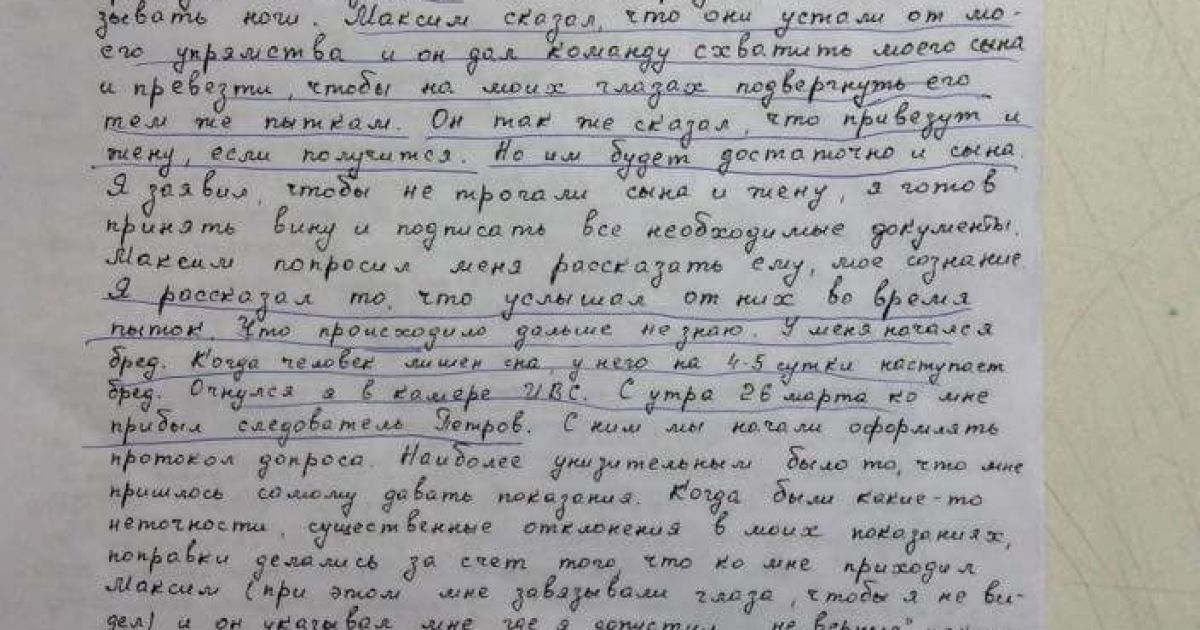 зывать ноги. Максим сказал, что они устали от мо-
его упрямства и он дал команду схватить моего сына
и превезти, чтобы на моих глазах подвергнуть его
тем же пыткам. Он так же сказал, что привезут и
жену, если получится. Но им будет достаточно и сына.
Я заявил, чтобы не трогали сына и жену, я готов
принять вину и подписать все необходимые документы.
Максим попросил меня рассказать ему, мое сознание.
Я рассказал то, что услышал от них во время
пыток. Что происходило дальше не знаю. У меня начался
бред. Когда человек лишен сна, у него на 4-5 сутки наступает
бред. Очнулся я в камере ИВС. С утра 26 марта ко мне
прибыл следователь Петров. С ним мы начали оформлять
протокол допроса. Наиболее унизительным было то, что мне
пришлось самому давать показания. Когда были какие-то
неточности, существенные отклонения в моих показаниях,
поправки делались за счет того, что ко мне приходил
Максим (при этом мне завязывали глаза, чтобы я не ви-
дел) и он указывал мне где я допустил